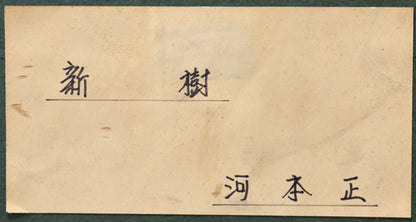 新樹
河本正